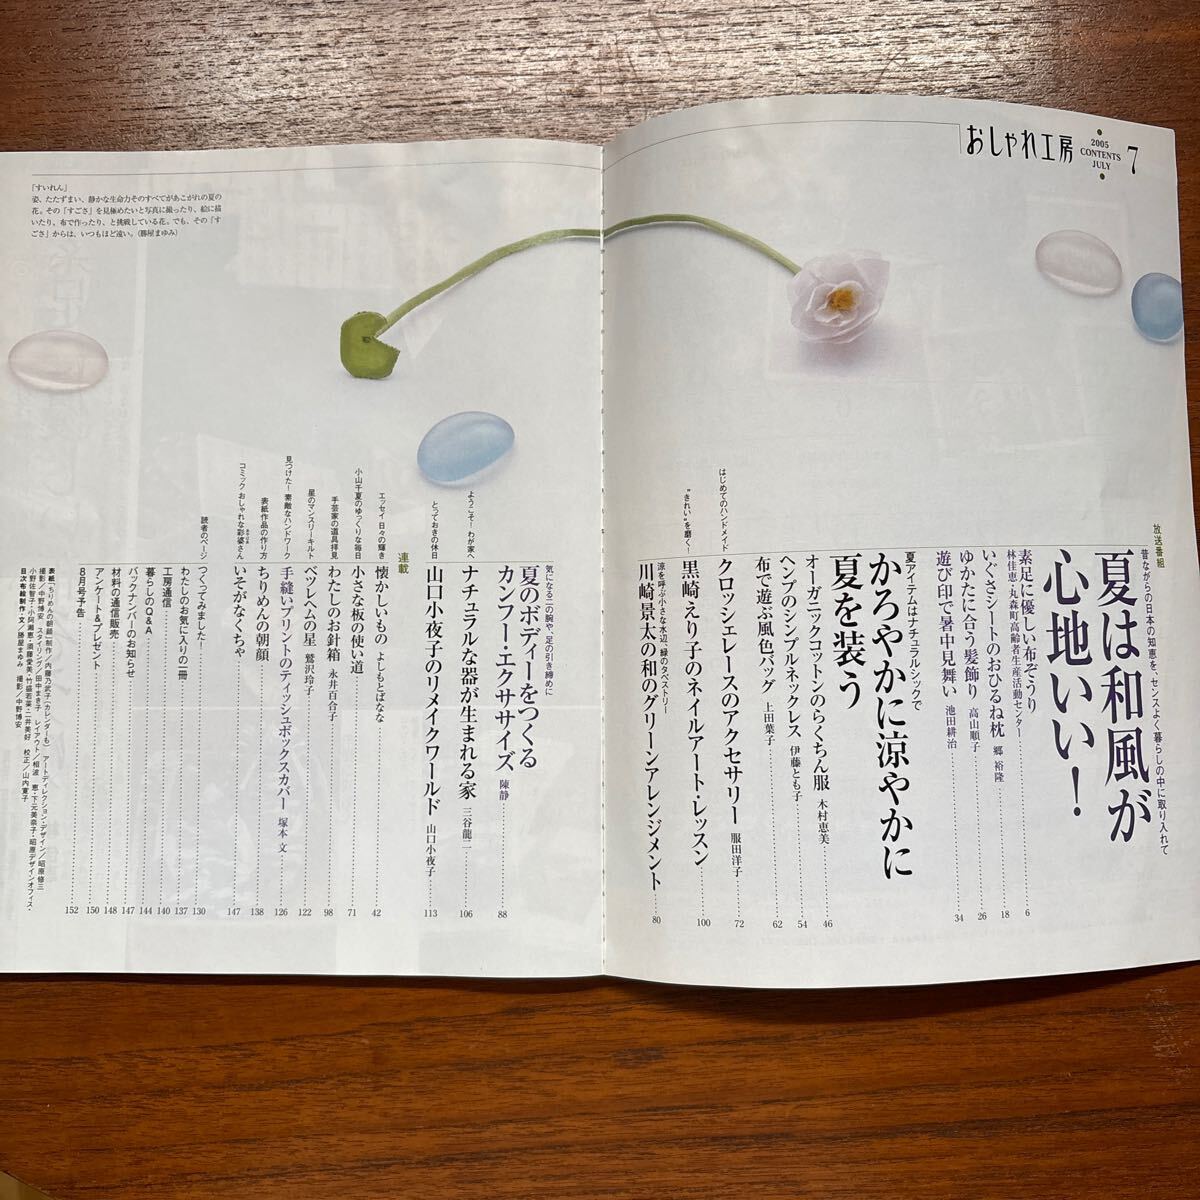 おしゃれ工房
2005
CONTENTS
JULY
7
放送番組
昔ながらの日本の知恵を、センスよく暮らしの中に取り入れて
夏は和風が
心地いい!
素足に優しい布ぞうり
林佳恵・丸森町高齢者生産活動センター……6
いぐさシートのおひるね枕 郷 裕隆……18
ゆかたに合う髪飾り 高山順子……26
遊び印で暑中見舞い 池田耕治……34
夏アイテムはナチュラルシックで
かろやかに涼やかに
夏を装う
オーガニックコットンのらくちん服 木村恵美……46
ヘンプのシンプルネックレス 伊藤とも子……54
布で遊ぶ風色バッグ 上田葉子……62
はじめてのハンドメイド
クロッシェレースのアクセサリー 服田洋子……72
“きれい”を磨く!
黒崎えり子のネイルアート・レッスン……100
涼を呼ぶ小さな水辺、緑のタペストリー
川崎景太の和のグリーンアレンジメント……80
「すいれん」
姿、たたずまい、静かな生命力そのすべてがあこがれの夏の
花。その「すごさ」を見極めたいと写真に撮ったり、絵に描
いたり、布で作ったり、と挑戦している花。でも、その「す
ごさ」からは、いつもほど遠い。(勝屋まゆみ)
気になる二の腕や、足の引き締めに
夏のボディーをつくる
カンフー・エクササイズ 陳静……88
ようこそ!わが家へ
ナチュラルな器が生まれる家 三谷龍二……106
とっておきの休日
山口小夜子のリメイクワールド 山口小夜子……113
連載
エッセイ 日々の輝き
懐かしいもの よしもとばなな……42
小山千夏のゆっくりな毎日
小さな板の使い道……71
手芸家の道具拝見
わたしのお針箱 永井百合子……98
星のマンスリーキルト
ベツレヘムの星 鷲沢玲子……122
見つけた!素敵なハンドワーク
手縫いプリントのティッシュボックスカバー 塚本 文……126
表紙作品の作り方
ちりめんの朝顔……138
コミック おしゃれな彩婆さん
いそがなくちゃ……147
読者のページ
つくってみました!……130
わたしのお気に入りの一冊……137
工房通信……140
暮らしのQ&A……144
バックナンバーのお知らせ……147
材料の通信販売……148
アンケート&プレゼント……150
8月号予告……152
表紙「ちりめんの朝顔」制作/内藤乃武子(カレンダーも) アートディレクション・デザイン/昭原修三
撮影/中野博安 スタイリング/田中まき子 レイアウト/相波 恵・下元美奈子・昭原デザインオフィス・
小野佐智子・小阿瀬恵・須藤愛美・竹盛若菜・二井美好 校正/山内寛子
目次布絵制作・文/勝屋まゆみ 撮影/中野博安